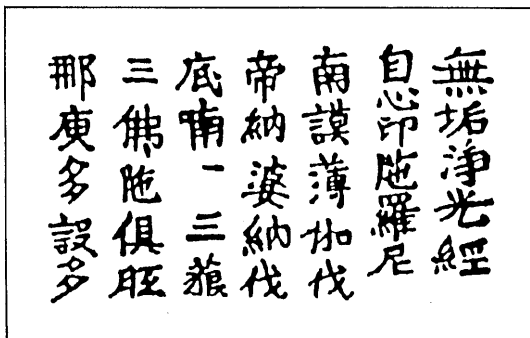 無垢淨光經
自心印陁羅尼
南謨薄伽伐
帝納婆納伐
底喃一三藐
三佛陁俱胝
那庾多設多